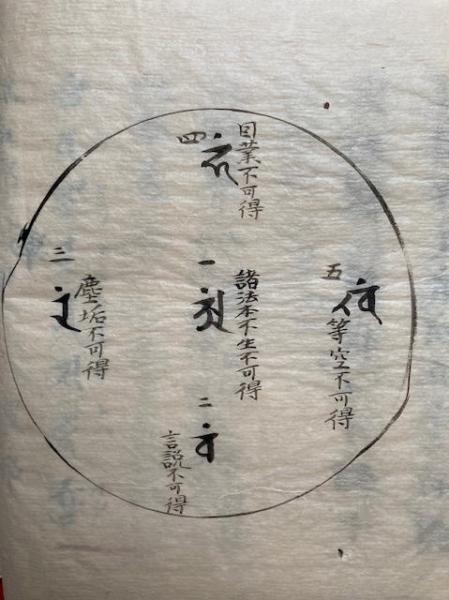 一
諸法本不生不可得
二
言說不可得
三
塵垢不可得
四
因業不可得
五
等空不可得